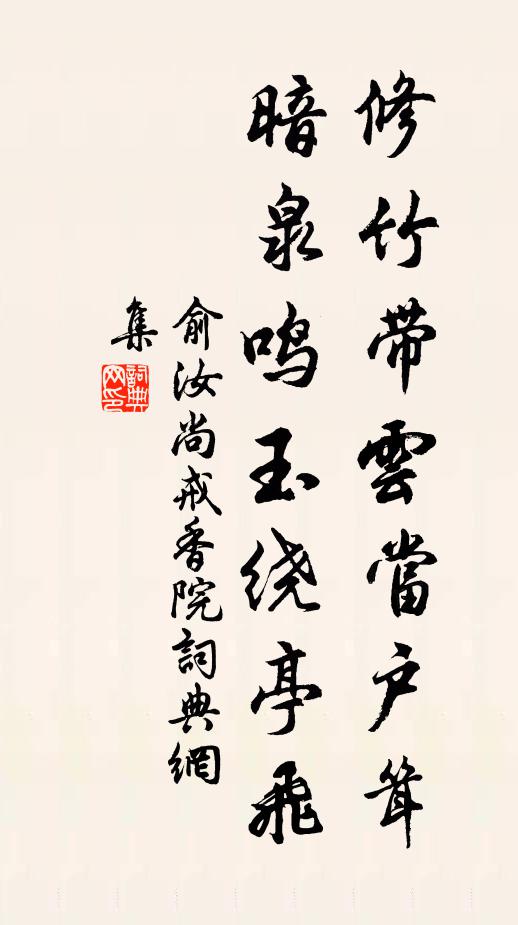 修竹带雲當户耸
暗泉鸣玉绕亭飛
俞汝尚戒香院詞典網
集
詞典网印